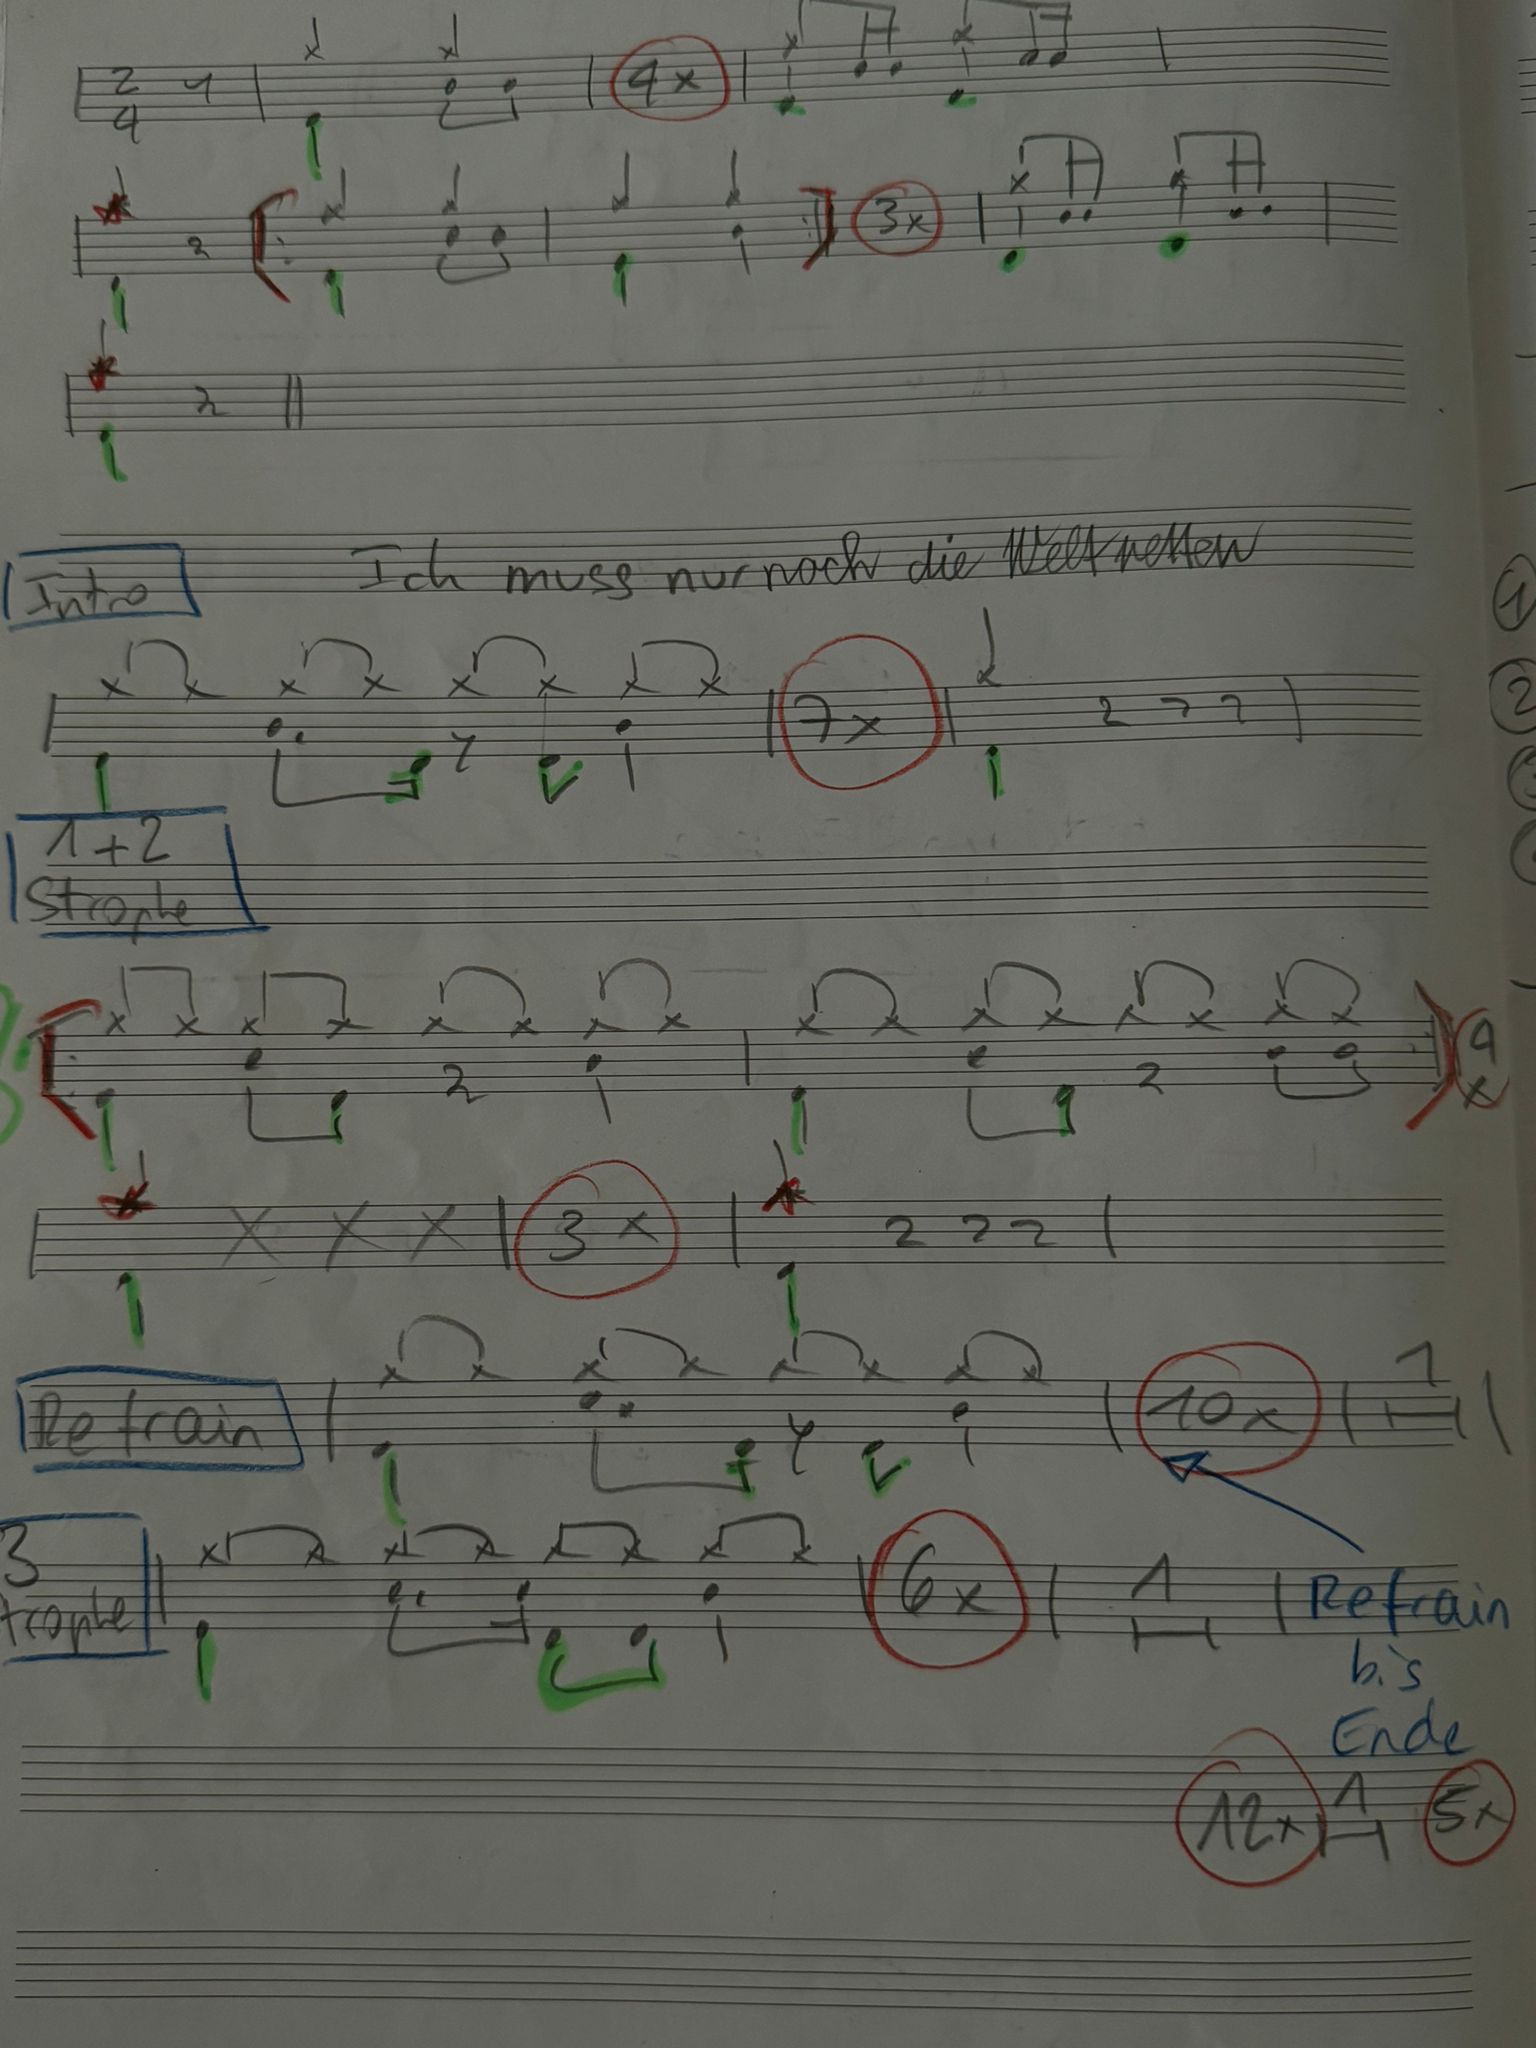 2
4
4x
3x
Intro
Ich muss nur noch die Welt retten
7x
1+2
Strophe
4
x
3x
Refrain
10x
1
3
trophe
6x
1
Refrain
bis
Ende
12x
1
5x
1
2